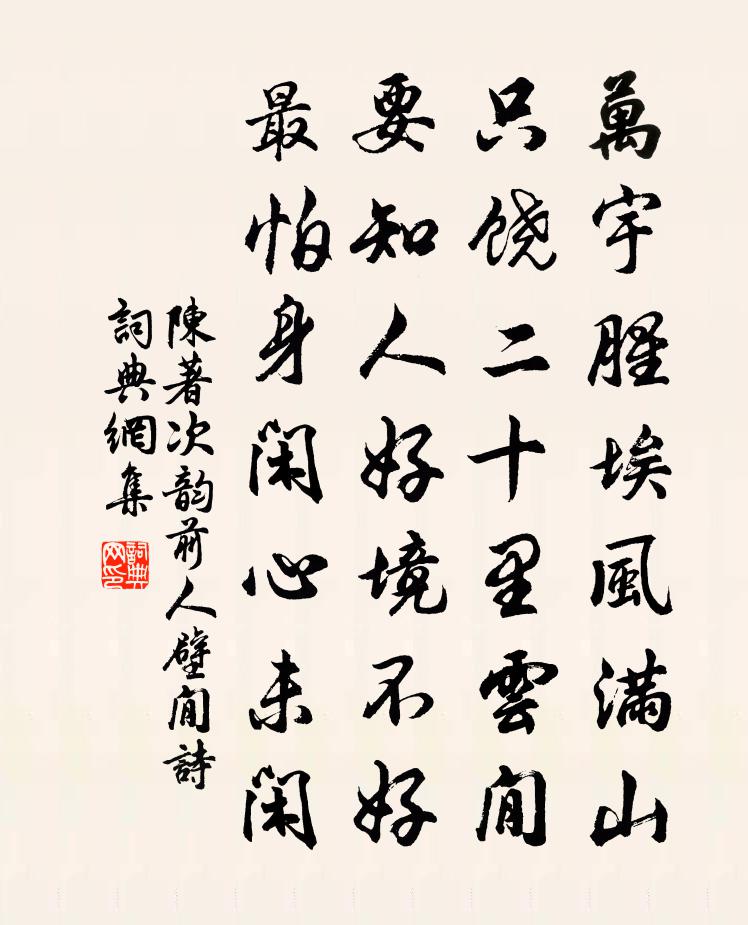 萬宇腥埃風满山
只饶二十里雲间
要知人好境不好
最怕身闲心未闲
陳著次韵前人壁间詩
詞典網集
詞典网印